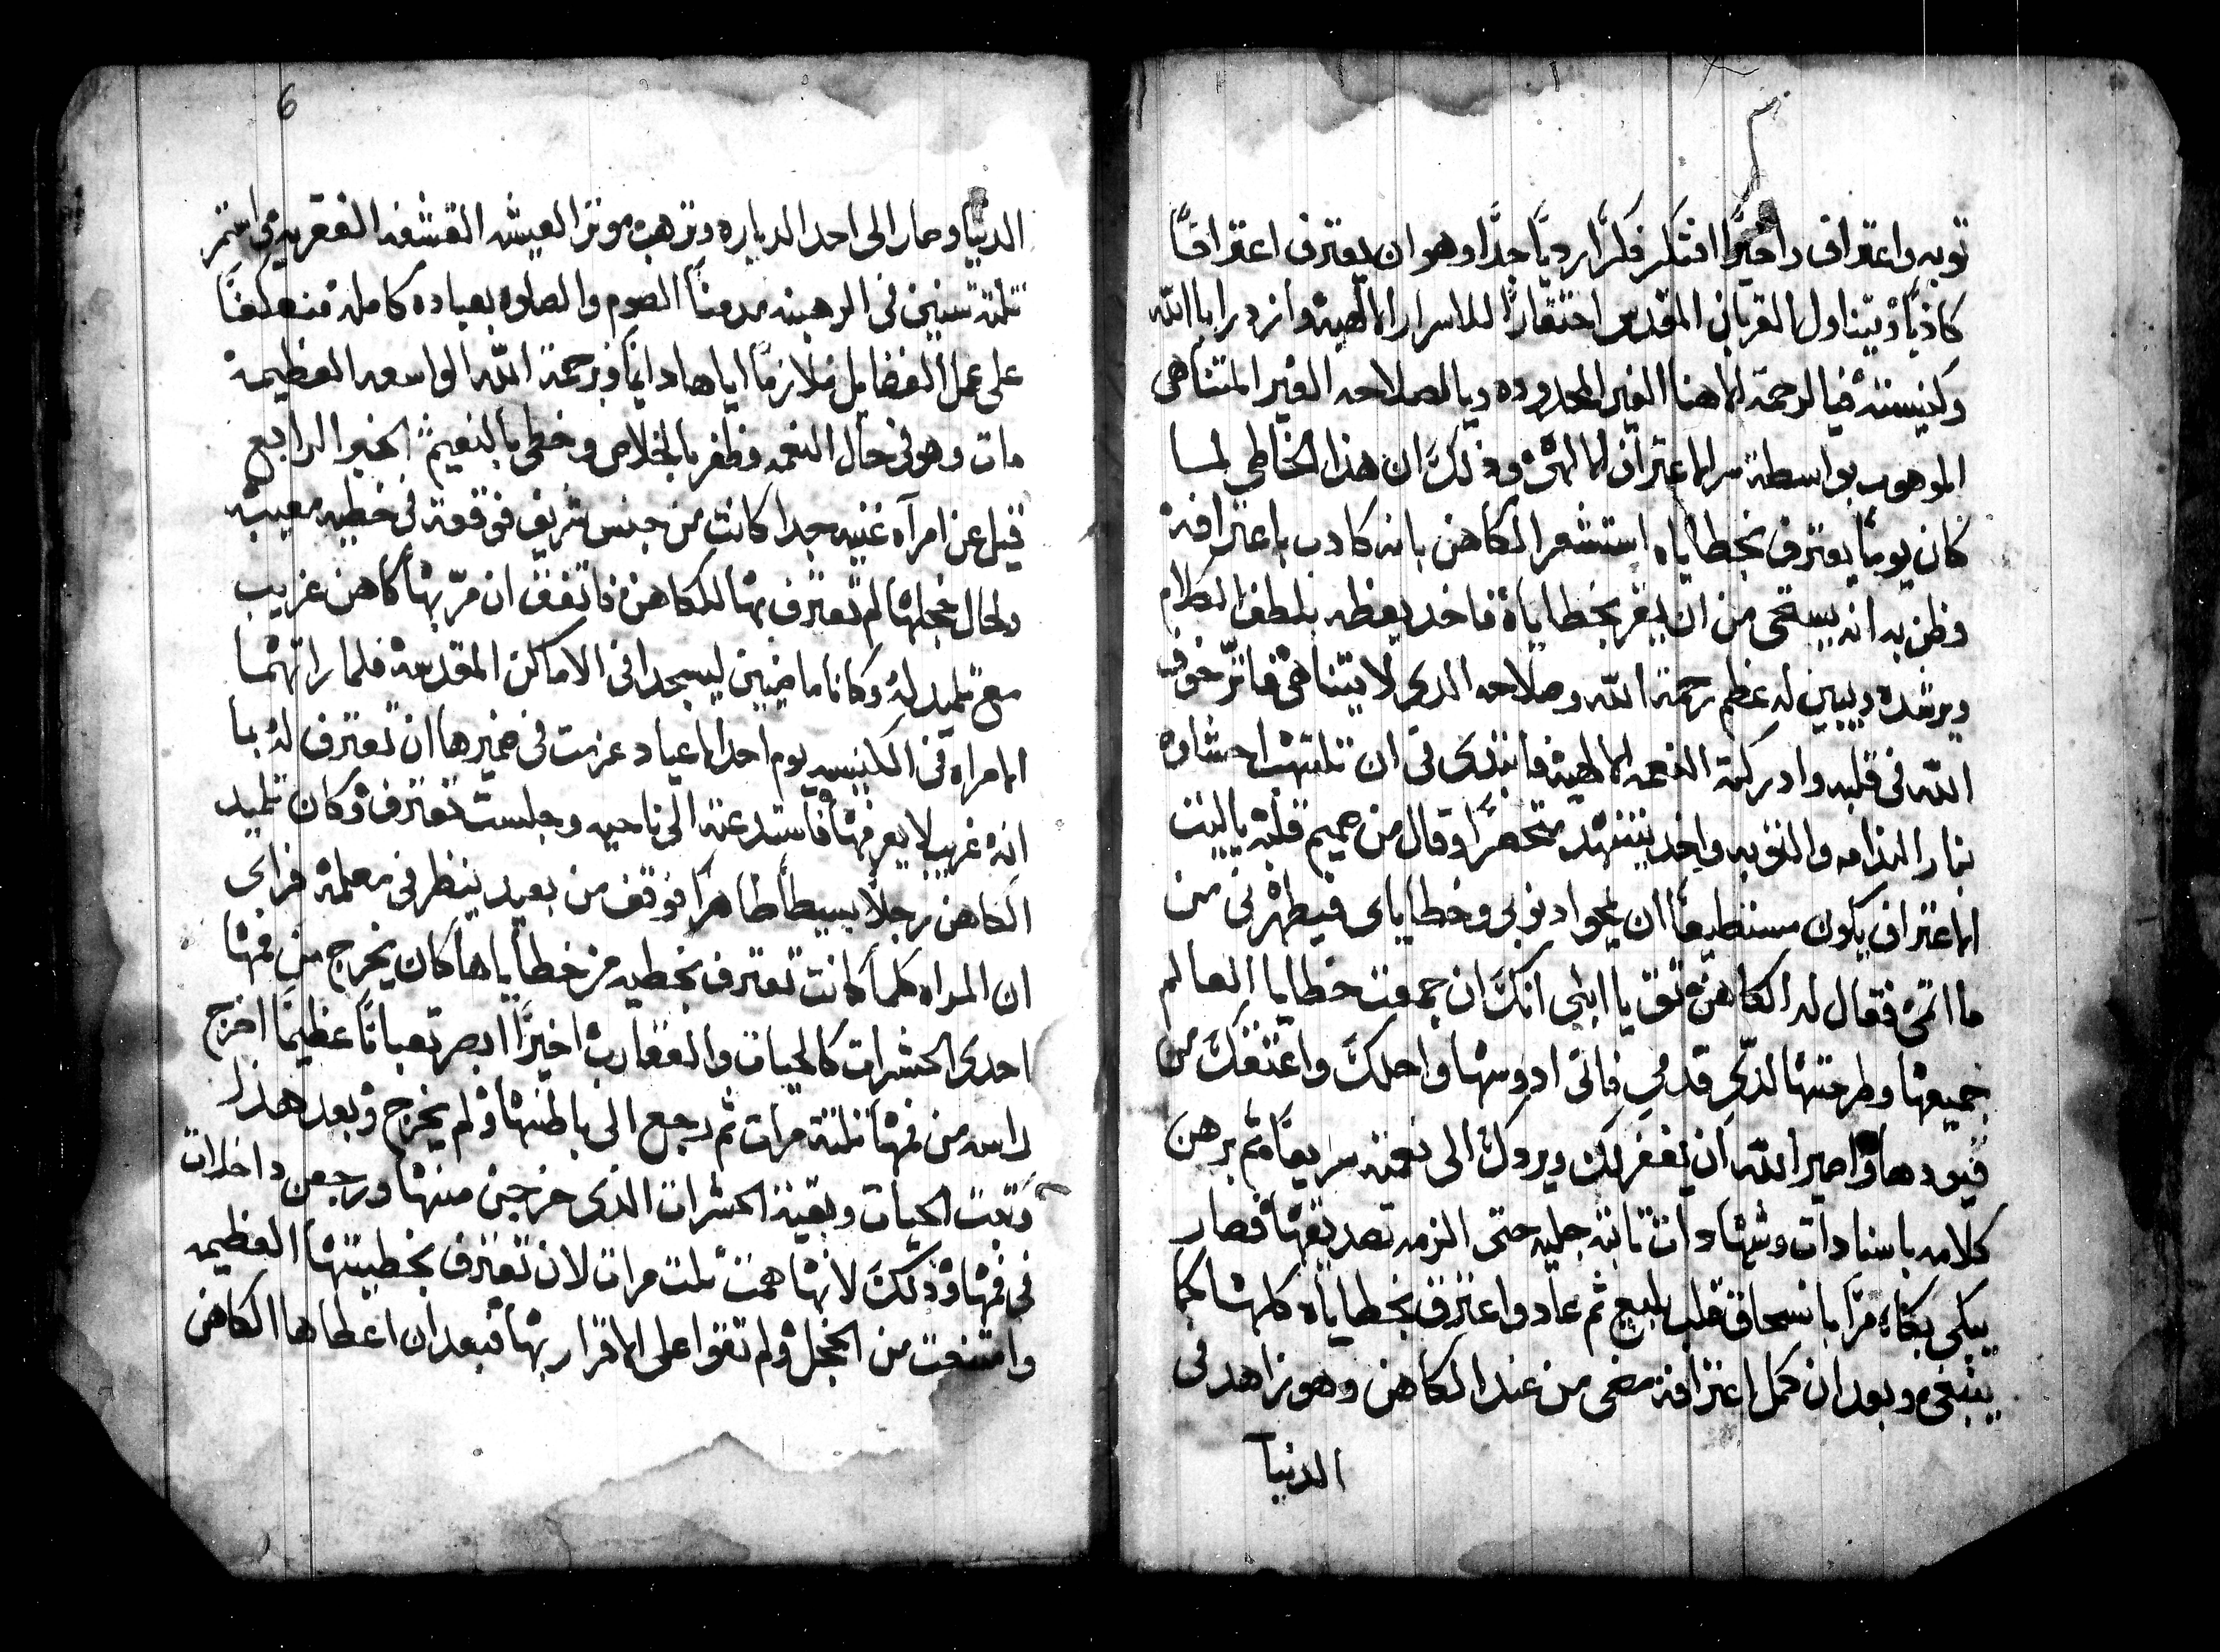 توبه واعتراف واخيرًا افتكر فكرًا رديًا جدًا وهو ان يعترف اعترافًا
كاذبًا ويتناول القربان المقدس احتقارًا للاسرار الالهيه وازدرا باالله
وكنيسته فيا لرحمة الاهنا الغير المحدوده ويا لصلاحه الغير المتناهى
الموهوب بواسطة سر الاعتراف الالهى وذلك ان هذا الخاطى لما
كان يومًا يعترف بخطاياه استشعر الكاهن بانه كادب باعترافه
وظن به انه يستحى من ان يقر بخطاياه فاخد يعظه بلطف الكلام
ويرشده ويبين له عظم رحمة الله وصلاحه الدى لا يتناهى فاثر خوف
الله فى قلبه وادركته النعمه الالهيه فابتدى فى ان تلتهب احشاوه
بنار الندامه والتوبه واخد يتنهد متحصرًا وقال من صميم قلبه يا ليت
الاعتراف يكون مستطيعًا ان يمحوا دنوبى وخطاياى فيطهرنى من
ماا تمى فقال له الكاهن ثق يا ابنى انك ان جمعت خطايا العالم
جميعها وطرحتها لدى قدمى فانى ادوسها واحلك واعتقك من
قيودها واصير الله ان يغفر لك ويردك الى نعمته سريعًا ثم برهن
كلامه باسنادات وشهادات ثابته جليه حتى الزمه تصديقها فصار
يبكى بكاءً مرًا بانسحاق قلب بليغ ثم عاد واعترف بخطاياه كلها كما
ينبغى وبعد ان كمل اعترافه مضى من عند الكاهن وهو زاهد فى
الدنيا
6
الدنيا وصار الى احد الدياره وترهب موثرا العيشه القشفه الفقريه واستمر
تلتة سنين فى الرهبنه مدمنًا الصوم والصلوه بعباده كامله منعكفًا
على عمل الفضايل ملازمًا اياها دايمًا وبرحمة الله الواسعه العظيمه
مات وهو فى حال النعمه وظفر بالخلاص وحظى بالنعيم الخبر الرابع
قيل عن امرآه غنيه جدا كانت من جنس شريف فوقعت فى خطيه معيبه
ولحال خجلها لم تعترف بها للكاهن فاتفق ان مرّ بها كاهن غريب
مع تلميد له وكانا ماضيين ليسجدا فى الاماكن المقدسه فلما راتهما
الامراه فى الكنيسه يوم احد الاعياد عزمت فى ضميرها ان تعترف له بما
انه غريب لا يعرفها فاستدعته الى ناحيه وجلست تعترف وكان تلميد
الكاهن رجلًا بسيطًا طاهرًا فوقف من بعيد ينظر فى معلمه فراى
ان المراه كلما كانت تعترف بخطيه من خطاياها كان يخرج من فمها
احدى الحشرات كالحيات والعقارب اخيرًا ابصر تعبانًا عظيمًا اخرج
راسه من فمها تلتة مرات ثم رجع الى باطنها ولم يخرج وبعد هذا
وتبت الحيات وبقية الحشرات الذى خرجين منها ورجعن داخلات
فى فمها وذلك لانها همت تلت مرات لان تعترف بخطيتها العظيمه
وامتنعت من الخجل ولم تقوا على الاقرار بها فبعد ان اعطاها الكاهن